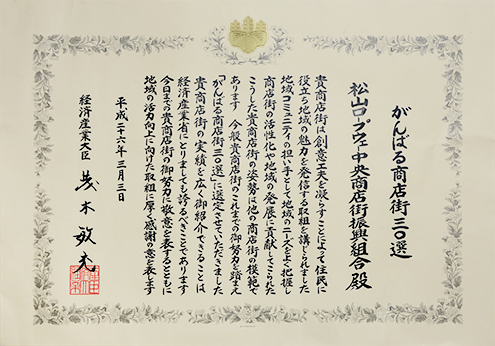 がんばる商店街三〇選
松山ロープウェー中央商店街振興組合殿
貴商店街は創意工夫を凝らすことによって住民に
役立ち地域の魅力を発信する取組を講じられました
地域コミュニティの担い手として地域のニーズをよく把握し
商店街の活性化や地域の発展に貢献してこられた
こうした貴商店街の姿勢は他の商店街の模範で
あります 今般貴商店街のこれまでの御努力を踏まえ
「がんばる商店街三〇選」に選定させていただきました
貴商店街の実績を広く御紹介できることは
経済産業省にとりましても誇るべきことであります
今日までの貴商店街の御努力に敬意を表するとともに
地域の活力向上に向けた取組に厚く感謝の意を表します
平成二十六年三月三日
経済産業大臣 茂木敏充